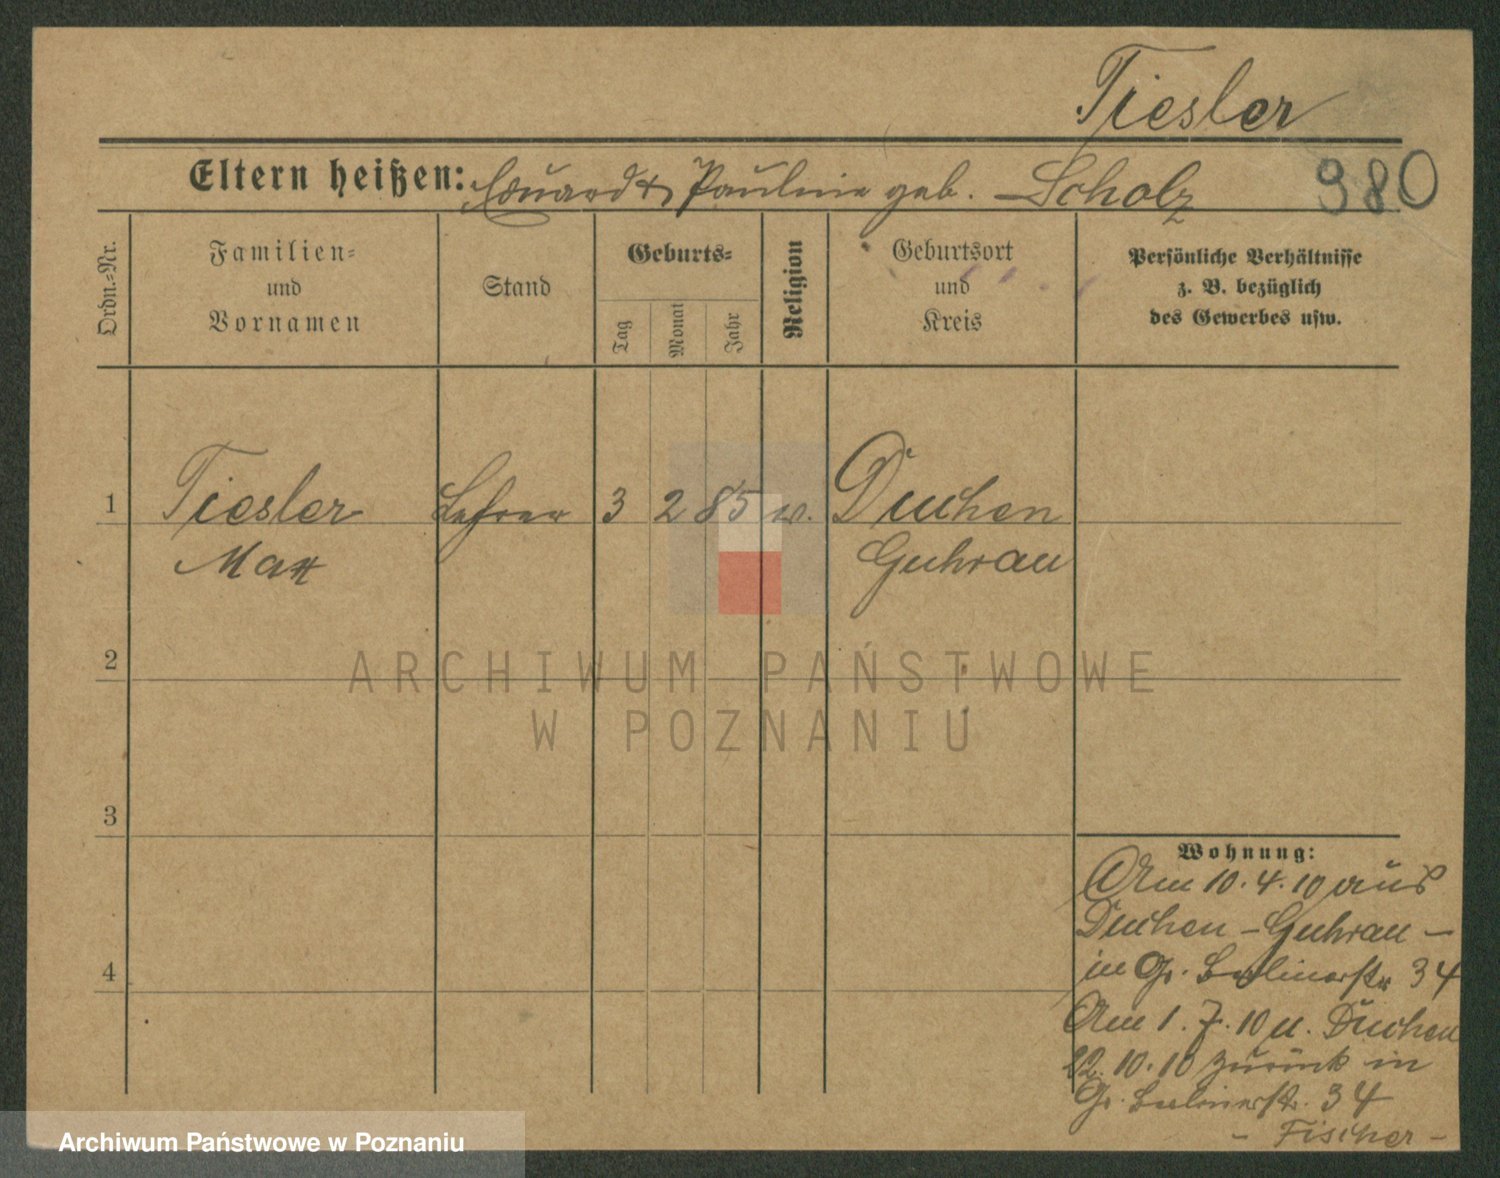 Tiesler
Eltern heißen: Eduard & Pauline geb. Scholz 980
Ordn.-Nr.
Familien-
und
Vornamen
Stand
Geburts-
Tag
Monat
Jahr
Religion
Geburtsort
und
Kreis
Persönliche Verhältnisse
z. B. bezüglich
des Gewerbes usw.
1 Tiesler Lehrer 3 2 85 Duchen
Max Guhrau
2
ARCHIWUM PAŃSTWOWE
W POZNANIU
3
Wohnung:
Am 10.4.10 aus
Duchen - Guhrau -
4
in Gr. Berlinerstr 34
Am 1.7.10 n. Duchen
22.10.10 zurück in
Gr. Berlinerstr. 34
- Fischer -
Archiwum Państwowe w Poznaniu